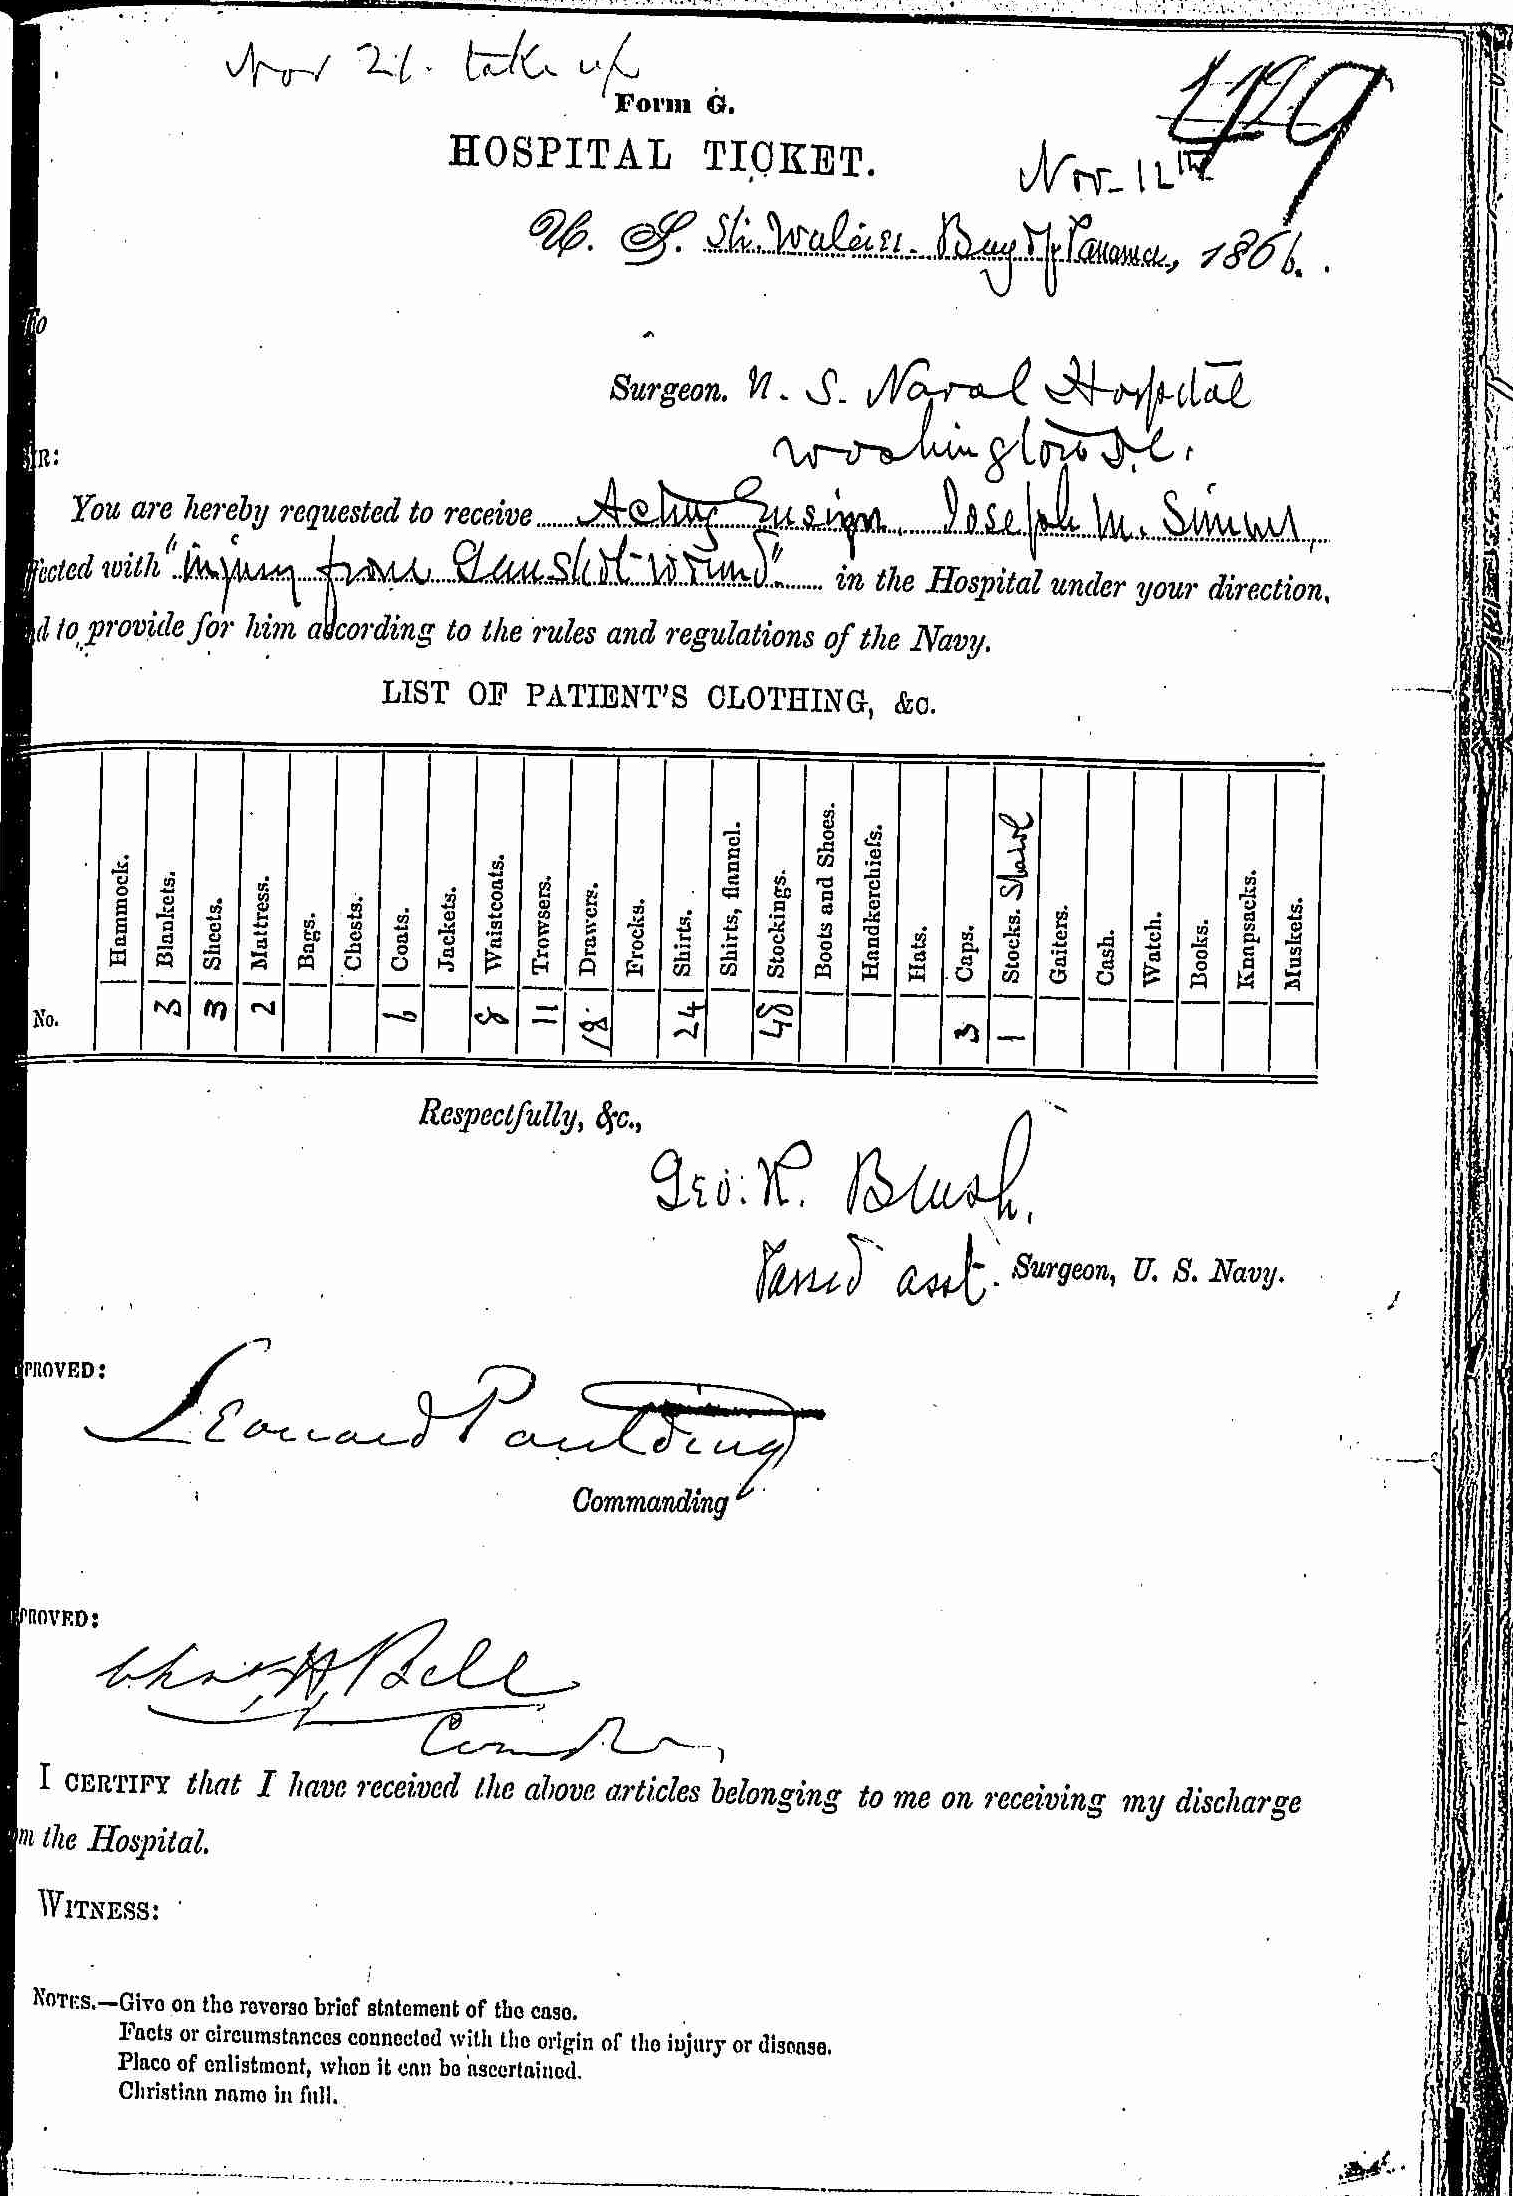 Nov 21. take up
Form G.
HOSPITAL TICKET.
Nov- 12th
U. S. Str. Bay of Panama, 1866.
To
Surgeon. U. S. Naval Hospital
Washington D.C.
SIR:
You are hereby requested to receive Acting Ensign Joseph M. Simms,
ffected with "injury from Gunshot-wound" in the Hospital under your direction,
d to provide for him according to the rules and regulations of the Navy.
LIST OF PATIENT'S CLOTHING, &c.
Hammock. Blankets. Sheets. Mattress. Bags. Chests. Coats. Jackets. Waistcoats. Trowsers. Drawers. Frocks. Shirts. Shirts, flannel. Stockings. Boots and Shoes. Handkerchiefs. Hats. Caps. Stocks. Shawl Gaiters. Cash. Watch. Books. Knapsacks. Muskets.
No. 3 3 2 6 8 11 18 24 48 3 1
Respectfully, &c.,
Geo. R. Brush.
Passed asst. Surgeon, U. S. Navy.
PROVED:
Leonard Paulding
Commanding
PROVED:
Chas H Bell
I CERTIFY that I have received the above articles belonging to me on receiving my discharge
m the Hospital.
WITNESS:
NOTES.—Give on the reverse brief statement of the case.
Facts or circumstances connected with the origin of the injury or disease.
Place of enlistment, when it can be ascertained.
Christian name in full.